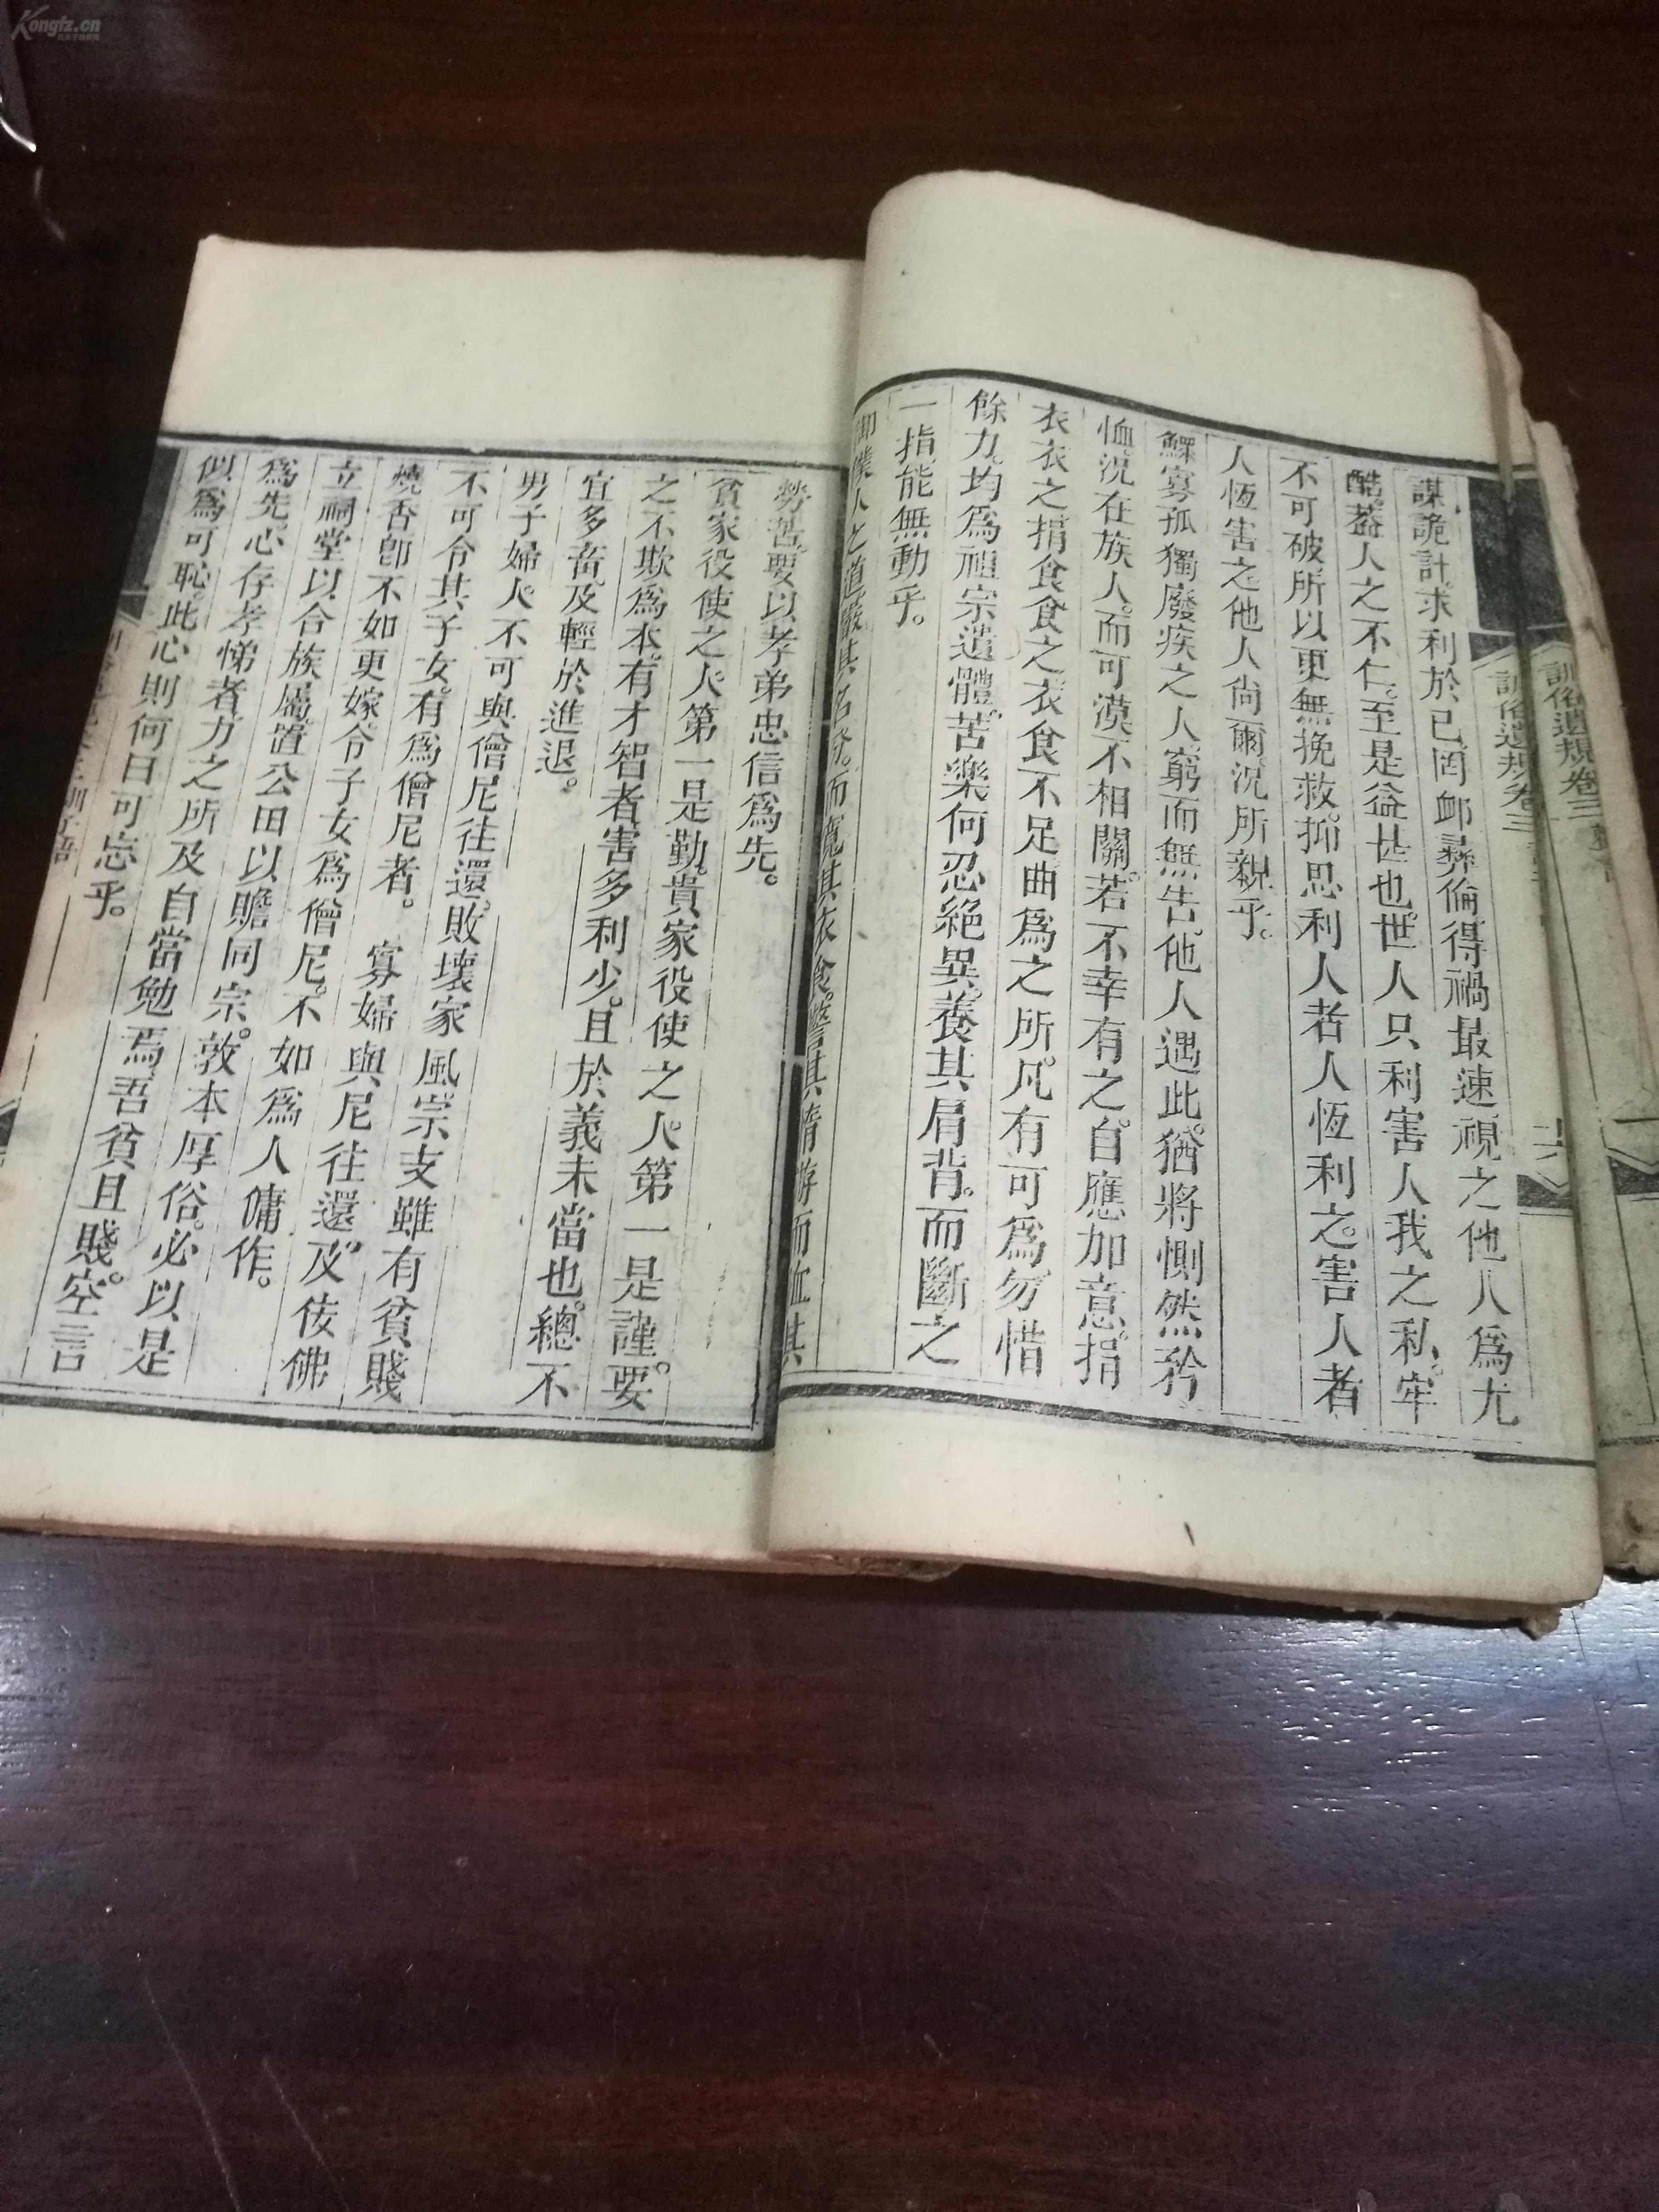 Kongfz.cn
訓俗遺規卷三
訓俗遺規卷三
謀詭計求利於已罔邮彜倫得禍最速視之他人爲尤
酷葢人之不仁至是益甚也世人只利害人我之私牢
不可破所以更無挽救抑思利人者人恆利之害人者
人恆害之他人尙爾況所親乎
鰥寡孤獨廢疾之人窮而無告他人遇此猶將惻然矜
恤況在族人而可漠不相關若不幸有之自應加意捐
衣衣之捐食食之衣食不足曲爲之所凡有可爲勿惜
餘力均爲祖宗遺體苦樂何忍絕異養其肩背而斷之
一指能無動乎
御僕人之道嚴其名分而寬其衣食警其惰游而恤其
勞苦要以孝弟忠信爲先
貧家役使之人第一是勤貴家役使之人第一是謹要
之不欺爲本有才智者害多利少且於義未當也總不
宜多畜及輕於進退
男子婦人不可與僧尼往還敗壞家風宗支雖有貧賤
不可令其子女有爲僧尼者 寡婦與尼往還及侫佛
燒香卽不如更嫁令子女爲僧尼不如爲人傭作
立祠堂以合族屬置公田以贍同宗敦本厚俗必以是
爲先心存孝悌者力之所及自當勉焉吾貧且賤空言
似爲可恥此心則何日可忘乎